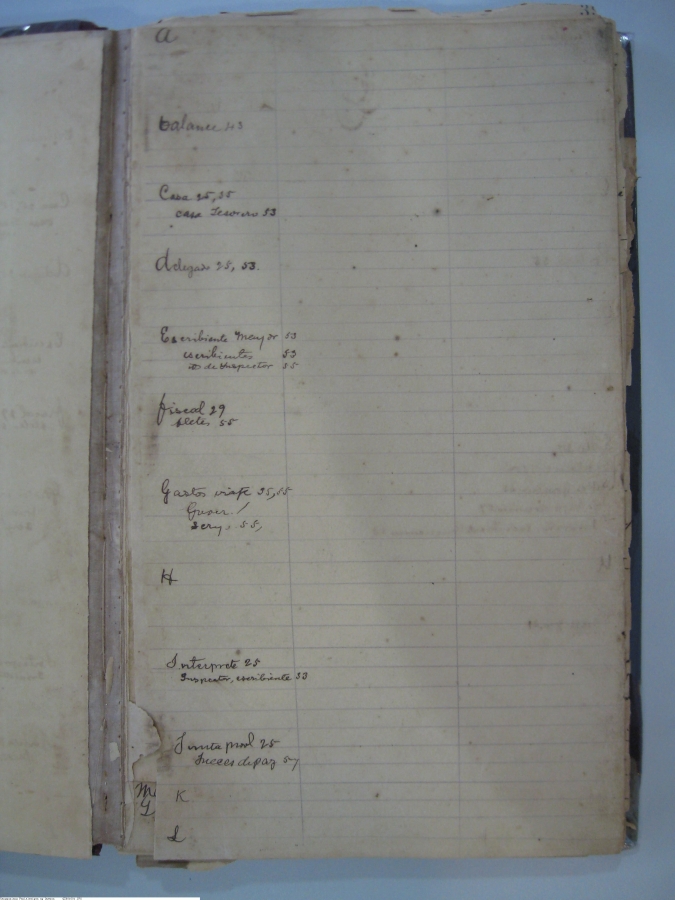 A
balance 43
Casa 25, 55
casa Tesorero 53
delegado 25, 53.
Escribiente Mayor 53
escribientes 53
de Inspector 55
fiscal 29
fletes 55
Gastos viaje 25, 55
55,
H
Interprete 25
Inspector, escribiente 53
Junta prov'l 25
Jueces de paz 57
K
L